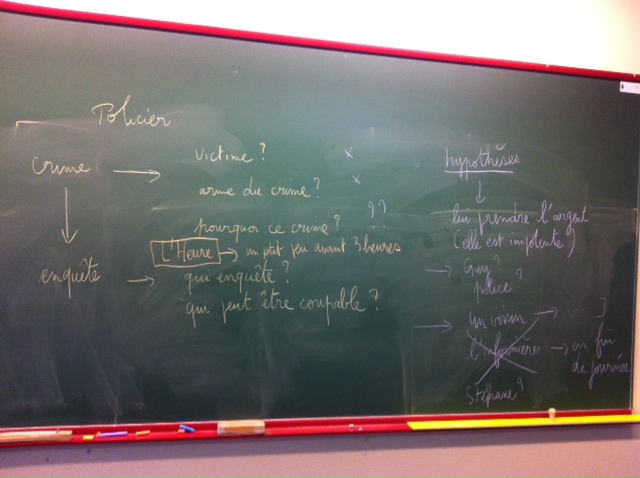 Policier
crime → victime ? x
arme du crime ? x
pourquoi ce crime ? ??
L'Heure → un ptit peu avant 3 heures
enquête → qui enquête ?
qui peut être coupable ?
hypothèses
↓
lui prendre l'argent
(elle est impotente)
→ Guy ?
police ?
→ un voisin → ...
l'infirmière → en fin
de journée
Stéphane ?